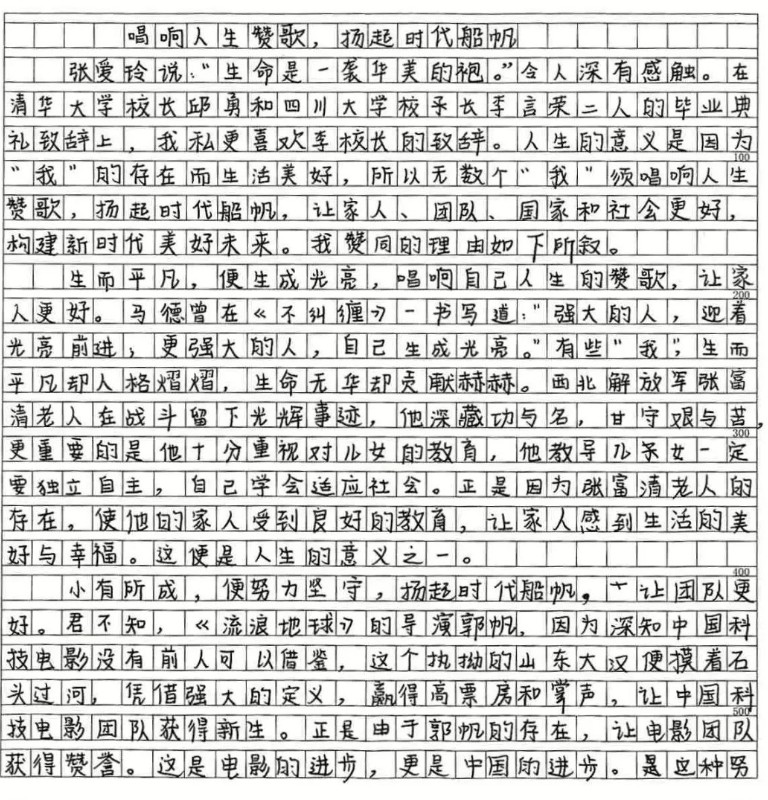 唱响人生赞歌，扬起时代船帆
张爱玲说："生命是一袭华美的袍。"令人深有感触。在
清华大学校长邱勇和四川大学校长李言荣二人的毕业典
礼致辞上，我私更喜欢李校长的致辞。人生的意义是因为
100
"我"的存在而生活美好，所以无数个"我"须唱响人生
赞歌，扬起时代船帆，让家人、团队、国家和社会更好，
构建新时代美好未来。我赞同的理由如下所叙。
生而平凡，便生成光亮，唱响自己人生的赞歌，让家
200
人更好。马德曾在《不纠缠》一书写道："强大的人，迎着
光亮前进；更强大的人，自己生成光亮。"有些"我"，生而
平凡却人格熠熠，生命无华却贡献赫赫。西北解放军张富
清老人在战斗留下光辉事迹，他深藏功与名，甘守艰与苦，
300
更重要的是他十分重视对儿女的教育，他教导儿女一定
要独立自主，自己学会适应社会。正是因为张富清老人的
存在，使他的家人受到良好的教育，让家人感到生活的美
好与幸福。这便是人生的意义之一。
400
小有所成，便努力坚守，扬起时代船帆，让团队更
好。君不知，《流浪地球》的导演郭帆，因为深知中国科
技电影没有前人可以借鉴，这个执拗的山东大汉便摸着石
头过河，凭借强大的定义，赢得高票房和掌声，让中国科
500
技电影团队获得新生。正是由于郭帆的存在，让电影团队
获得赞誉。这是电影的进步，更是中国的进步。是这种努